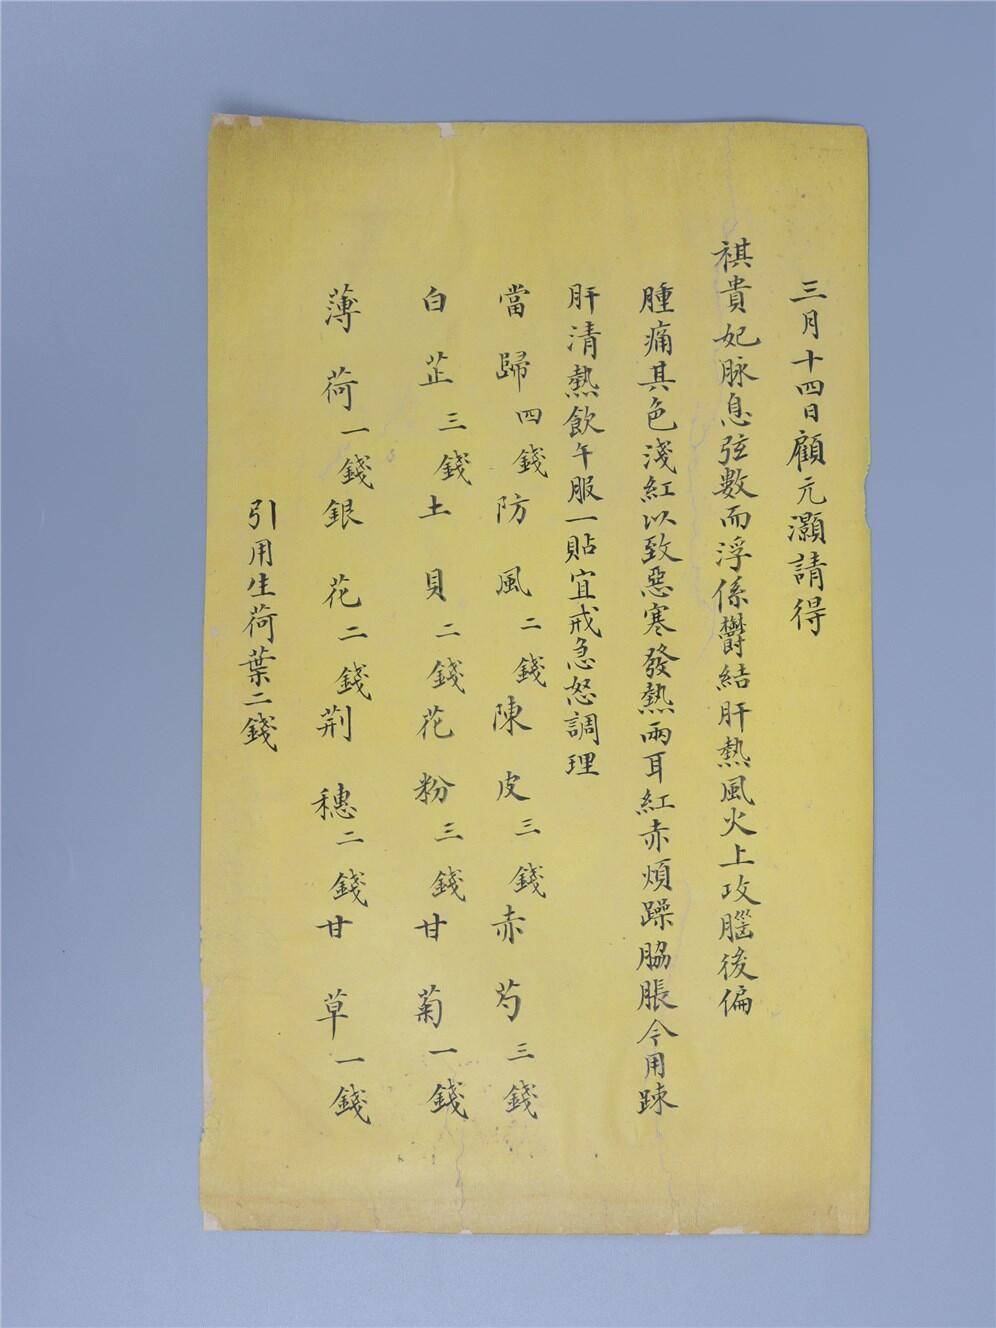 三月十四日顧元灝請得
祺貴妃脉息弦數而浮係鬱結肝熱風火上攻腦後偏
腫痛其色淺紅以致惡寒發熱兩耳紅赤煩躁脇脹今用踈
肝清熱飲午服一貼宜戒急怒調理
當歸四錢防風二錢陳皮三錢赤芍三錢
白芷三錢土貝二錢花粉三錢甘菊一錢
薄荷一錢銀花二錢荆穗二錢甘草一錢
引用生荷葉二錢